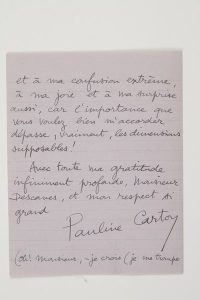 et à ma confusion extrême,
à ma joie et à ma surprise
aussi, car l'importance que
vous voulez bien m'accorder
dépasse, vraiment, les dimensions
supposables!
Avec toute ma gratitude
infiniment profonde, Monsieur
Descaves, et mon respect si
grand
Pauline Carton
(oh! Monsieur, je crois (je me trompe